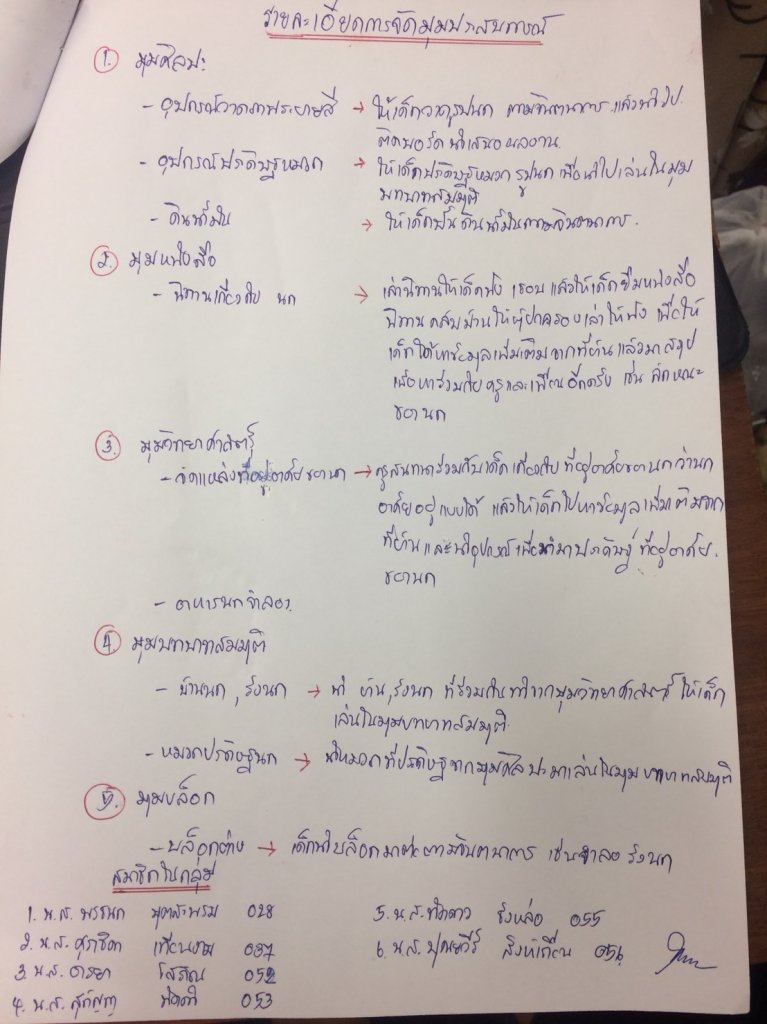 รายละเอียดการจัดมุมประสบการณ์
① มุมศิลปะ
- อุปกรณ์วาดภาพระบายสี → ให้เด็กวาดรูปนก ตามจินตนาการ แล้วนำไป
ติดบอร์ดนำเสนอผลงาน
- อุปกรณ์ประดิษฐ์หมวก → ให้เด็กประดิษฐ์หมวกรูปนก เพื่อนำไปเล่นในมุม
บทบาทสมมุติ
- ดินน้ำมัน → ให้เด็กปั้นดินน้ำมันตามจินตนาการ.
② มุมหนังสือ
- นิทานเกี่ยวกับ นก → เล่านิทานให้เด็กฟัง 1 รอบ แล้วให้เด็กยืมหนังสือ
นิทานกลับบ้านให้ผู้ปกครองเล่าให้ฟัง เพื่อให้
เด็กได้หาข้อมูลเพิ่มเติมจากที่บ้าน แล้วมาสรุป
เนื้อหาร่วมกับครูและเพื่อนอีกครั้ง เช่น ลักษณะ
ของนก
③ มุมวิทยาศาสตร์
- จัดแหล่งที่อยู่อาศัยของนก → ครูสนทนาร่วมกับเด็กเกี่ยวกับ ที่อยู่อาศัยของนกว่านก
อาศัยอยู่แบบใด แล้วให้เด็กไปหาข้อมูลเพิ่มเติมจาก
ที่บ้านและนำอุปกรณ์เพื่อนำมาประดิษฐ์ ที่อยู่อาศัย
ของนก
- อาหารนกจำลอง.
④ มุมบทบาทสมมุติ
- บ้านนก, รังนก → นำ บ้าน, รังนก ที่ร่วมกันทำจากมุมวิทยาศาสตร์ ให้เด็ก
เล่นในมุมบทบาทสมมุติ
- หมวกประดิษฐ์นก → นำหมวกที่ประดิษฐ์จากมุมศิลปะมาเล่นในมุมบทบาทสมมุติ
⑤. มุมบล็อก
- บล็อกต่าง → เด็กนำบล็อกมาต่อตามจินตนาการ เช่นจำลอง รังนก
สมาชิกในกลุ่ม
1. น.ส. พรชนก 028
2. น.ส. 037
3. น.ส. อารยา 052
4. น.ส. 053
5. น.ส. 055
6. น.ส. 056